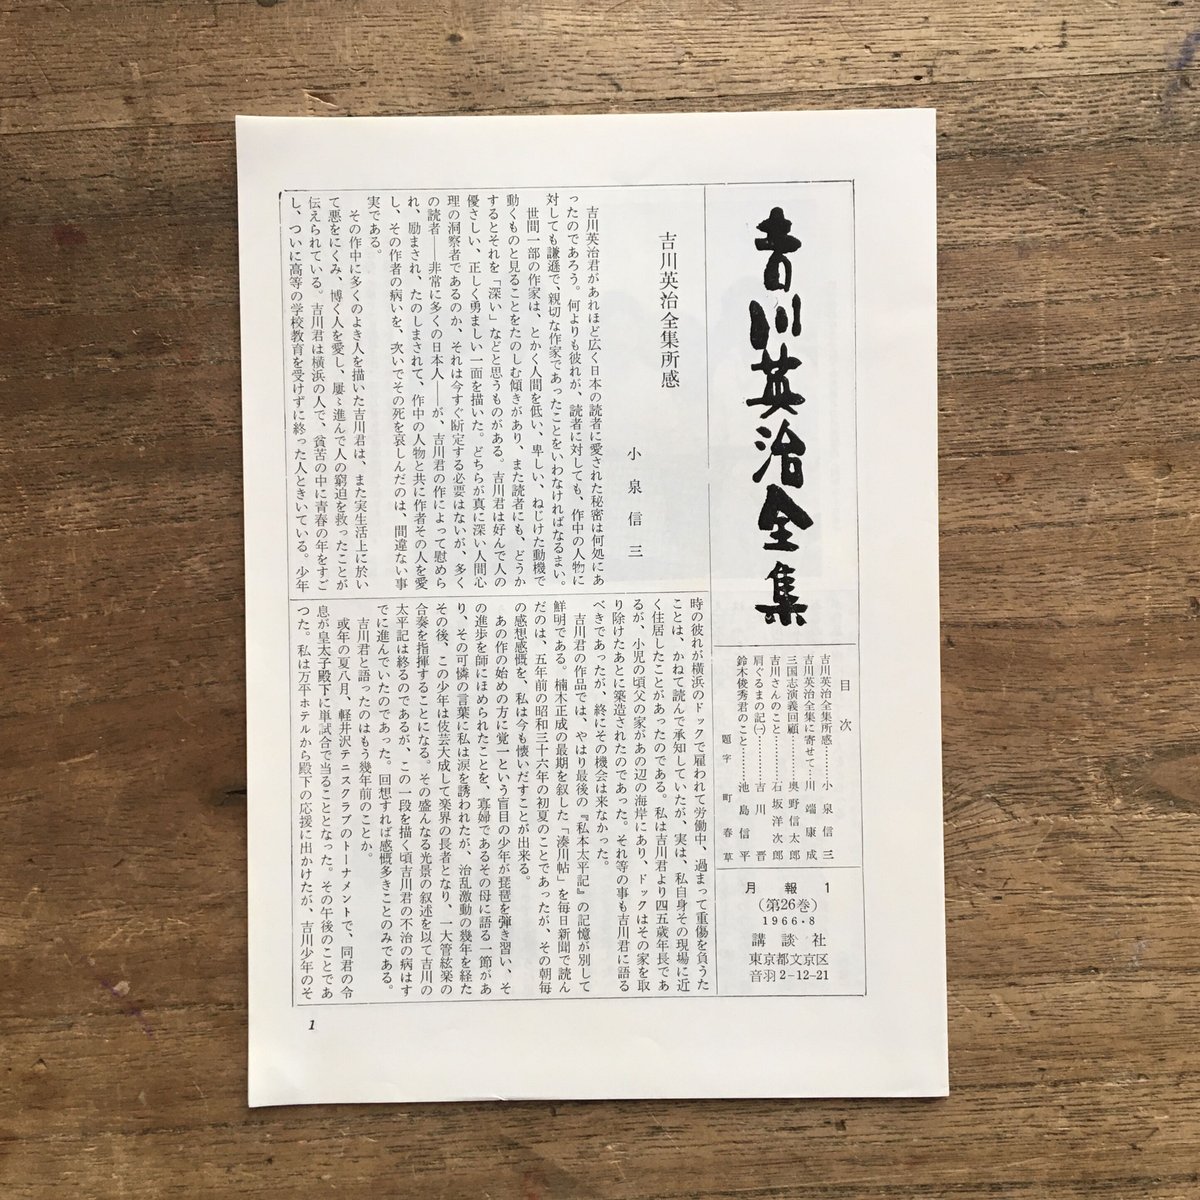 吉川英治全集
目次
吉川英治全集所感……小泉信三
吉川英治全集に寄せて…川端康成
三国志演義回顧………奥野信太郎
吉川さんのこと………石坂洋次郎
肩ぐるまの記㈠………吉川晋
鈴木俊秀君のこと……池島信平
題字 町春草
月報1
(第26巻)
1966・8
講談社
東京都文京区
音羽2-12-21
吉川英治全集所感
小泉信三
吉川英治君があれほど広く日本の読者に愛された秘密は何処にあ
ったのであろう。何よりも彼れが、読者に対しても、作中の人物に
対しても謙遜で、親切な作家であったことをいわなければなるまい。
世間一部の作家は、とかく人間を低い、卑しい、ねじけた動機で
動くものと見ることをたのしむ傾きがあり、また読者にも、どうか
するとそれを「深い」などと思うものがある。吉川君は好んで人の
優さしい、正しく勇ましい一面を描いた。どちらが真に深い人間心
理の洞察者であるのか、それは今すぐ断定する必要はないが、多く
の読者――非常に多くの日本人――が、吉川君の作によって慰めら
れ、励まされ、たのしまされて、作中の人物と共に作者その人を愛
し、その作者の病いを、次いでその死を哀しんだのは、間違ない事
実である。
その作中に多くのよき人を描いた吉川君は、また実生活上に於い
て悪をにくみ、博く人を愛し、屡〻進んで人の窮迫を救ったことが
伝えられている。吉川君は横浜の人で、貧苦の中に青春の年をすご
し、ついに高等の学校教育を受けずに終った人ときいている。少年
時の彼れが横浜のドックで雇われて労働中、過まって重傷を負うた
ことは、かねて読んで承知していたが、実は、私自身その現場に近
く住居したことがあったのである。私は吉川君より四五歳年長であ
るが、小児の頃父の家があの辺の海岸にあり、ドックはその家を取
り除けたあとに築造されたのであった。それ等の事も吉川君に語る
べきであったが、終にその機会は来なかった。
吉川君の作品では、やはり最後の『私本太平記』の記憶が別して
鮮明である。楠木正成の最期を叙した「湊川帖」を毎日新聞で読ん
だのは、五年前の昭和三十六年の初夏のことであったが、その朝毎
の感想感慨を、私は今も懐いだすことが出来る。
あの作の始めの方に覚一という盲目の少年が琵琶を弾き習い、そ
の進歩を師にほめられたことを、寡婦であるその母に語る一節があ
り、その可憐の言葉に私は涙を誘われたが、治乱激動の幾年を経た
その後、この少年は伎芸大成して楽界の長者となり、一大管絃楽の
合奏を指揮することになる。その盛んなる光景の叙述を以て吉川の
太平記は終るのであるが、この一段を描く頃吉川君の不治の病はす
でに進んでいたのであった。回想すれば感慨多きことのみである。
吉川君と語ったのはもう幾年前のことか。
或年の夏八月、軽井沢テニスクラブのトーナメントで、同君の令
息が皇太子殿下に単試合で当ることとなった。その午後のことであ
った。私は万平ホテルから殿下の応援に出かけたが、吉川少年のそ
1